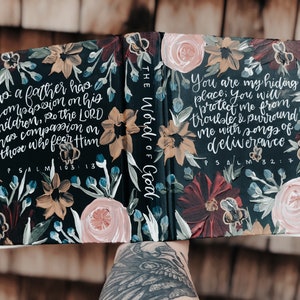 as a father has
compassion on his
children, so the LORD
has compassion on
those who fear Him
PSALM 103:13
THE Word OF God
You are my hiding
place; You will
protect me from
trouble & surround
me with songs of
deliverance
PSALM 32:7